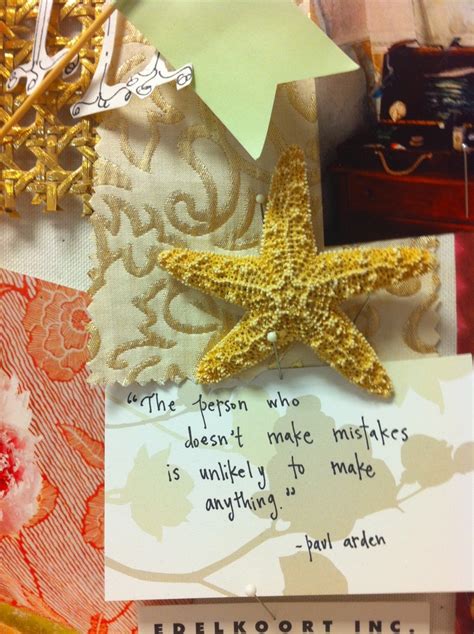 "The person who
doesn't make mistakes
is unlikely to make
anything."
-paul arden
EDELKOORT INC.